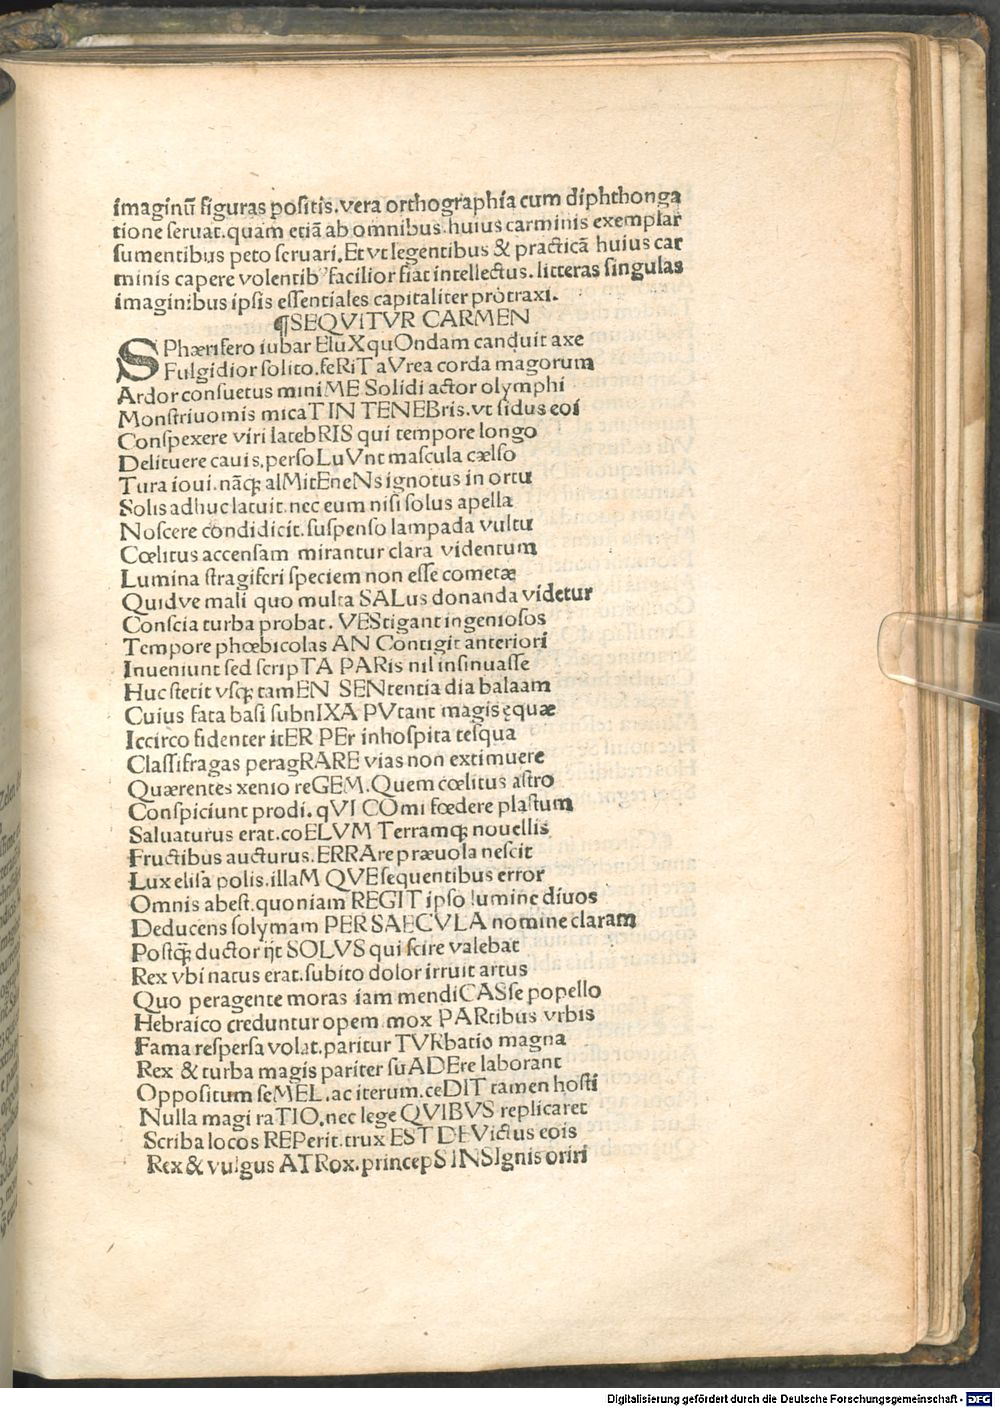 imaginū figuras positis.vera orthographia cum diphthonga
tione seruat.quam etiā ab omnibus.huius carminis exemplar
sumentibus peto seruari.Et vt legentibus & practicā huius car
minis capere volentibꝰ facilior fiat intellectus.litteras singulas
imaginibus ipsis essentiales capitaliter protraxi.
¶SEQVITVR CARMEN
SPhærifero iubar EluXquOndam canduit axe
Fulgidior solito.feRiT aVrea corda magorum
Ardor consuetus miniME Solidi actor olymphi
Monstriuomis micaT IN TENEBris.vt sidus eoi
Conspexere viri latebRIS qui tempore longo
Delituere cauis.persoLuVnt mascula cælso
Tura ioui.nāqꝫ alMitEneNs ignotus in ortu
Solis adhuc latuit.nec eum nisi solus apella
Noscere condidicit.suspenso lampada vultu
Cœlitus accensam mirantur clara videntum
Lumina stragiferi speciem non esse cometæ
Quidve mali quo multa SALus donanda videtur
Conscia turba probat. VEStigant ingeniosos
Tempore phœbicolas AN Contigit anteriori
Inueniunt sed scripTA PARis nil insinuasse
Huc stetit vsqꝫ tamEN SENtentia dia balaam
Cuius fata basi subnIXA PVtant magis ęquæ
Iccirco fidenter itER PEr inhospita tesqua
Classifragas peragRARE vias non extimuere
Quærentes xenio reGEM.Quem cœlitus astro
Conspiciunt prodi.qVI COmi fœdere plastum
Saluaturus erat.coELVM Terramqꝫ nouellis
Fructibus aucturus.ERRAre præuola nescit
Lux elisa polis.illaM QVEsequentibus error
Omnis abest.quoniam REGIT ipso lumine diuos
Deducens solymam PER SAECVLA nomine claram
Postqꝫ ductor iħt SOLVS qui scire valebat
Rex vbi natus erat.subito dolor irruit artus
Quo peragente moras iam mendiCASse popello
Hebraico creduntur opem mox PARtibus vrbis
Fama respersa volat.paritur TVRbatio magna
Rex & turba magis pariter suADEre laborant
Oppositum seMEL.ac iterum.ceDIT tamen hosti
Nulla magi raTIO.nec lege QVIBVS replicaret
Scriba locos REPerit.trux EST DEVictus eois
Rex & vulgus ATRox.princepS INSIgnis oriri
Digitalisierung gefördert durch die Deutsche Forschungsgemeinschaft - DFG